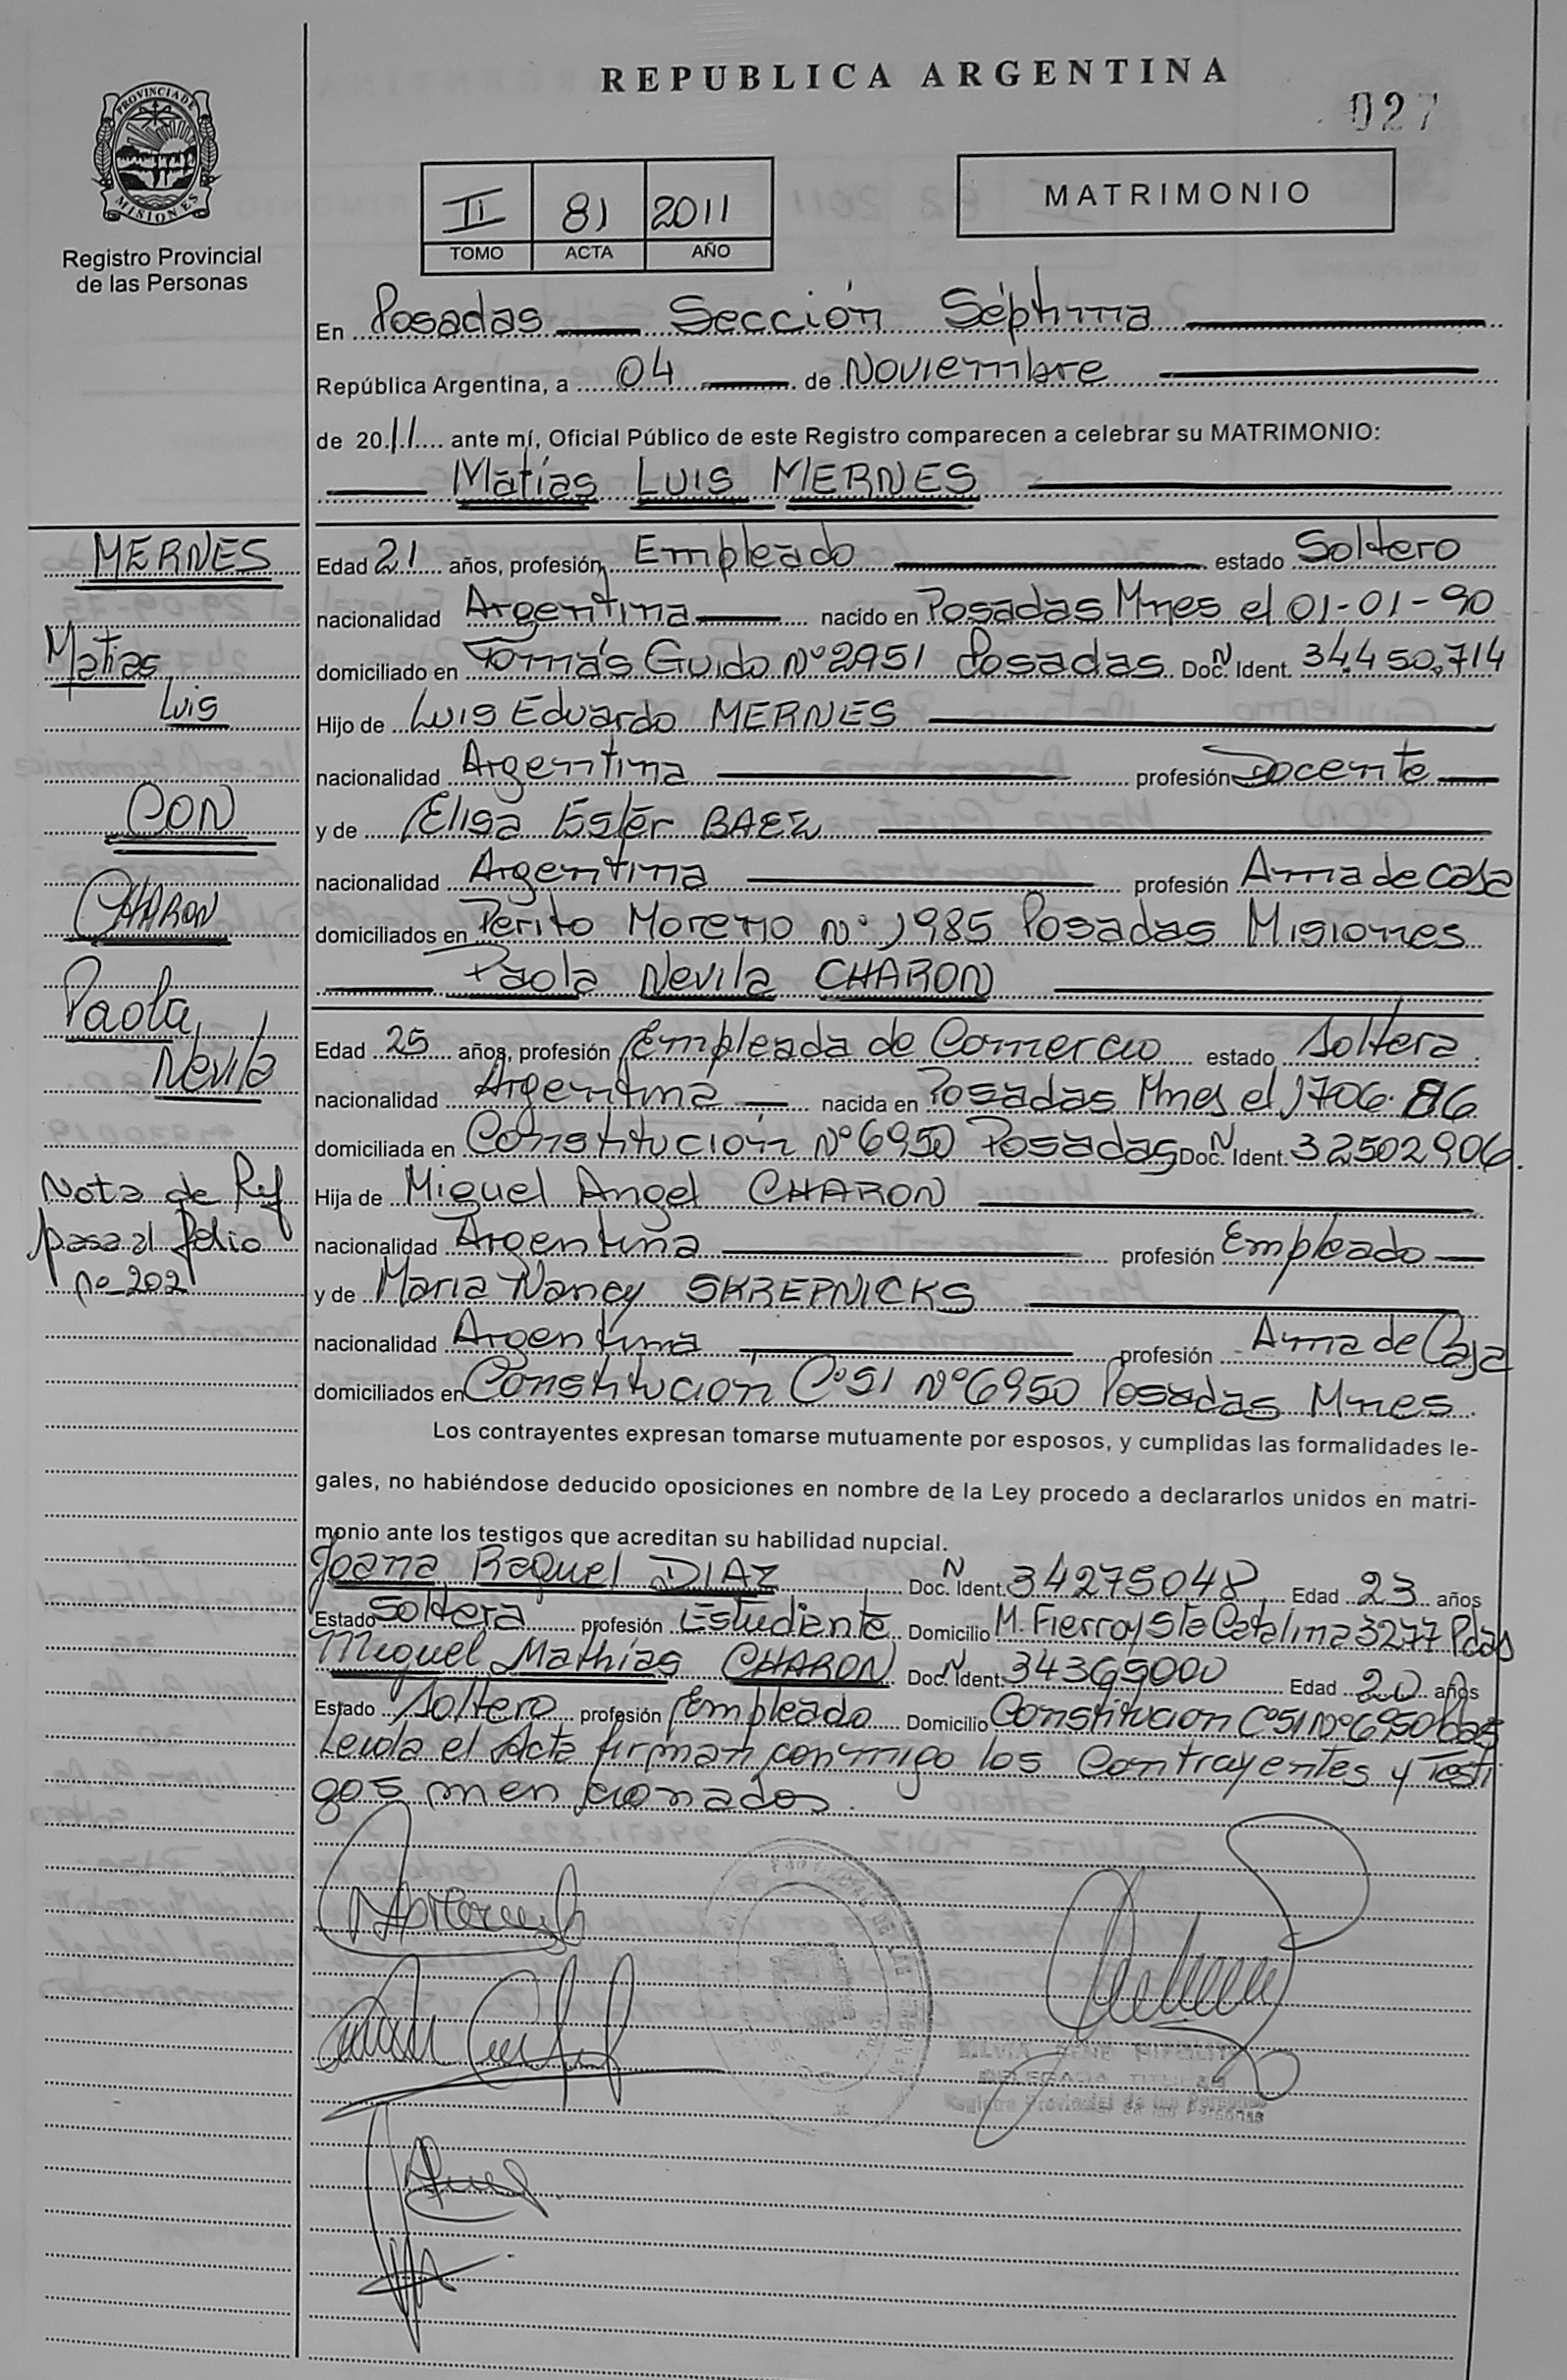 REPUBLICA ARGENTINA
027
PROVINCIA DE
MISIONES
Registro Provincial
de las Personas
II 81 2011
TOMO ACTA AÑO
MATRIMONIO
En Posadas Sección Séptima
República Argentina, a 04 de Noviembre
de 2011 ante mí, Oficial Público de este Registro comparecen a celebrar su MATRIMONIO:
Matías Luis MERNES
MERNES
Matias
Luis
CON
CHARON
Paola
Nevila
Nota de Ref
pasa al folio
nº 202
Edad 21 años, profesión Empleado estado Soltero
nacionalidad Argentina nacido en Posadas Mnes el 01-01-90
domiciliado en Tomás Guido Nº 2951 Posadas Doc. N Ident. 34.450.714
Hijo de Luis Eduardo MERNES
nacionalidad Argentina profesión Docente
y de Elisa Ester BAEZ
nacionalidad Argentina profesión Ama de casa
domiciliados en Perito Moreno Nº 1985 Posadas Misiones
Paola Nevila CHARON
Edad 25 años, profesión Empleada de Comercio estado Soltera
nacionalidad Argentina nacida en Posadas Mnes el 1706.86
domiciliada en Constitución Nº 6950 Posadas Doc. N Ident. 32502906.
Hija de Miguel Angel CHARON
nacionalidad Argentina profesión Empleado
y de Maria Nancy SKREPNICKS
nacionalidad Argentina profesión Ama de Casa
domiciliados en Constitución Cº51 Nº 6950 Posadas Mnes
Los contrayentes expresan tomarse mutuamente por esposos, y cumplidas las formalidades le-
gales, no habiéndose deducido oposiciones en nombre de la Ley procedo a declararlos unidos en matri-
monio ante los testigos que acreditan su habilidad nupcial.
Joana Raquel DIAZ Doc. N Ident. 34275048 Edad 23 años
Estado Soltera profesión Estudiante Domicilio M. Fierro y Sta Catalina 3277 Pdas
Miguel Mathías CHARON Doc. N Ident. 34365000 Edad 20 años
Estado Soltero profesión Empleado Domicilio Constitucion Cº51 Nº6950 Pdas
Leida el Acta firman conmigo los Contrayentes y Testi
gos mencionados.
DELEGADA TITULAR
Registro Provincial de las Personas